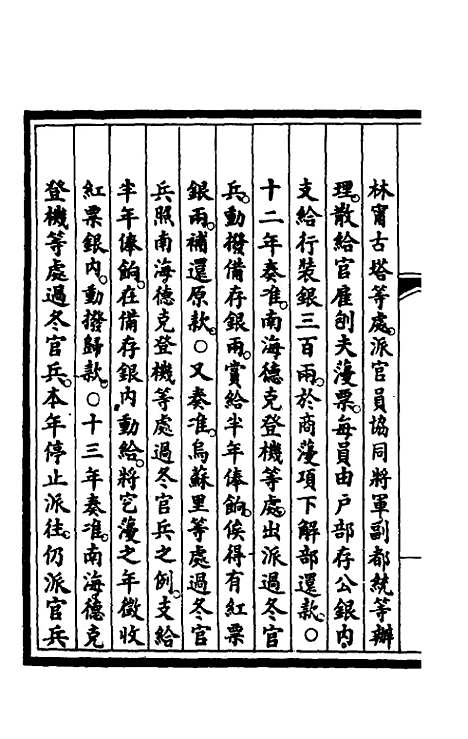 林甯古塔等處。派官員協同將軍副都統等辦
理。散給官雇刨夫蓡票。每員由戶部存公銀內。
支給行裝銀三百兩。於商蓡項下解部還款。○
十二年奏准。南海德克登機等處。出派過冬官
兵。動撥備存銀兩。賞給半年俸餉。俟得有紅票
銀兩。補還原款。○又奏准。烏蘇里等處過冬官
兵。照南海德克登機等處過冬官兵之例。支給
半年俸餉。在備存銀內動給。將它蓡之年徵收
紅票銀內。動撥歸款。○十三年奏准。南海德克
登機等處過冬官兵。本年停止派往。仍派官兵